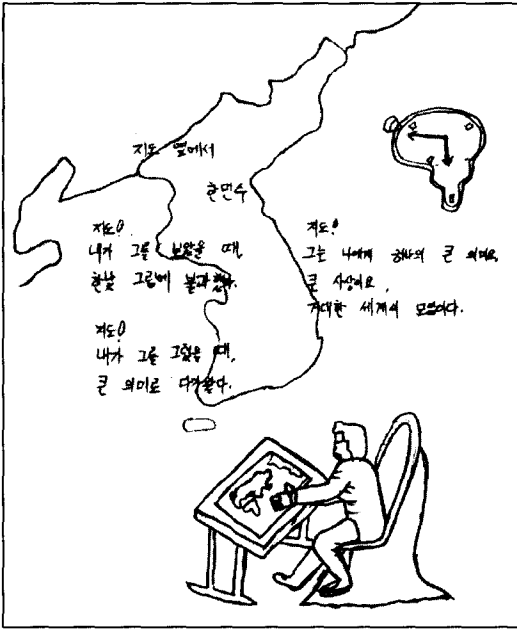 지도 옆에서
한민수
지도!
내가 그를 보았을 때,
한낱 그림에 불과했다.
지도!
내가 그를 그렸을 때,
큰 의미로 다가왔다.
지도!
그는 나에게 하나의 큰 의미요,
큰 사상이요,
거대한 세계의 모습이다.